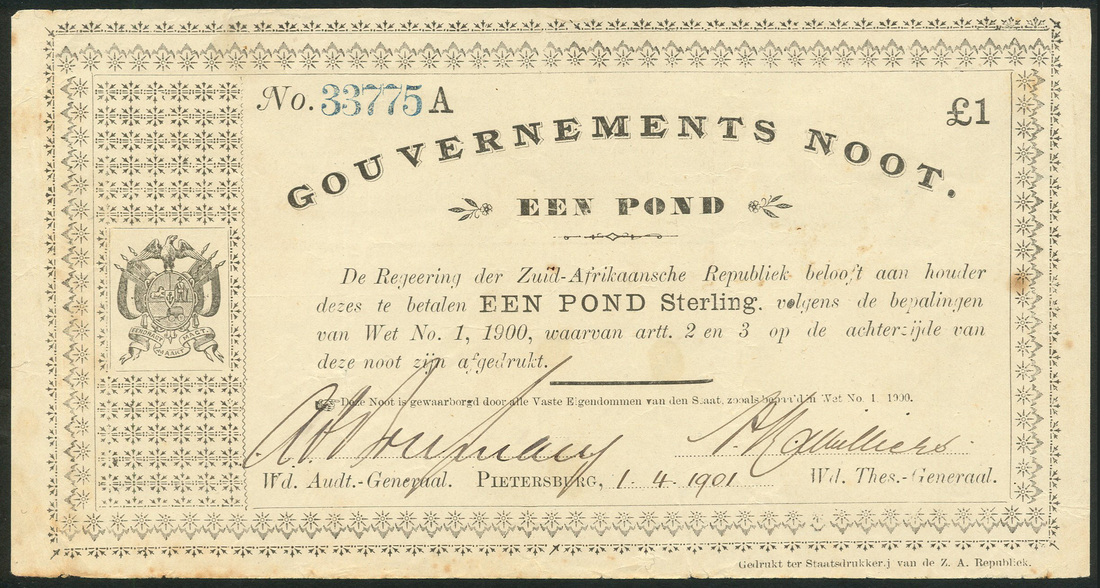 No. 33775 A
£1
GOUVERNEMENTS NOOT.
EEN POND
De Regeering der Zuid-Afrikaansche Republiek belooft aan houder
dezes te betalen EEN POND Sterling. volgens de bepalingen
van Wet No. 1, 1900, waarvan artt. 2 en 3 op de achterzijde van
deze noot zijn afgedrukt.
EENDRAGT MAAKT MAGT
Deze Noot is gewaarborgd door alle Vaste Eigendommen van den Staat, zooals bepaald in Wet No. 1 1900.
Wd. Audt.-Generaal. PIETERSBURG, 1. 4. 1901 Wd. Thes.-Generaal.
Gedrukt ter Staatsdrukkerij van de Z. A. Republiek.